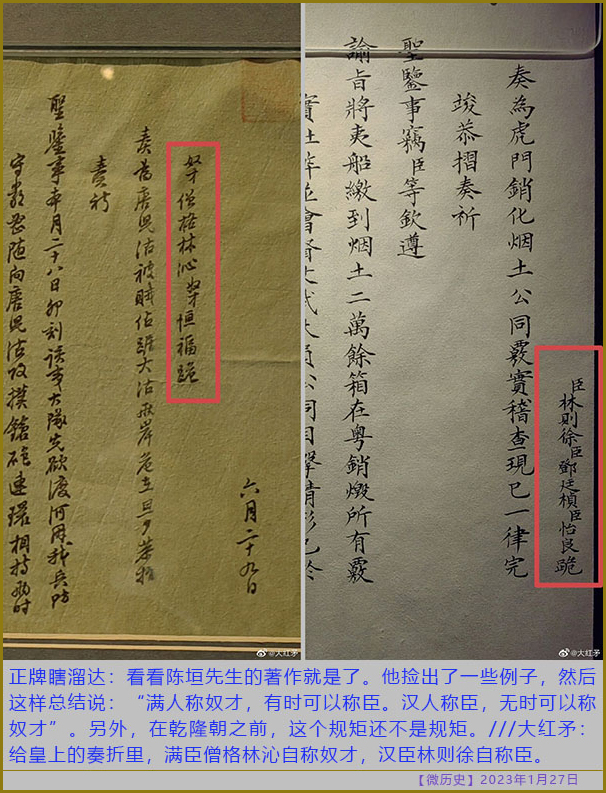 六月二十九日
奴才僧格林沁奴才恒福跪
奏為唐兒沽被賊佔踞大沽兩岸危立旦夕恭摺
奏祈
聖鑒事本月二十八日卯刻該夷大隊先欲渡河我兵防
守嚴密隨向唐兒沽攻撲鎗砲連環相持時
@大红矛
臣林則徐臣鄧廷楨臣怡良跪
奏為虎門銷化烟土公同覈實稽查現已一律完
竣恭摺奏祈
聖鑒事竊臣等欽遵
諭旨將夷船繳到烟土二萬餘箱在粤銷燬所有覈
文武大員公同目擊情形已於
@大红矛
正牌瞎溜达：看看陈垣先生的著作就是了。他捡出了一些例子，然后
这样总结说：“满人称奴才，有时可以称臣。汉人称臣，无时可以称
奴才”。另外，在乾隆朝之前，这个规矩还不是规矩。///大红矛：
给皇上的奏折里，满臣僧格林沁自称奴才，汉臣林则徐自称臣。
【微历史】2023年1月27日